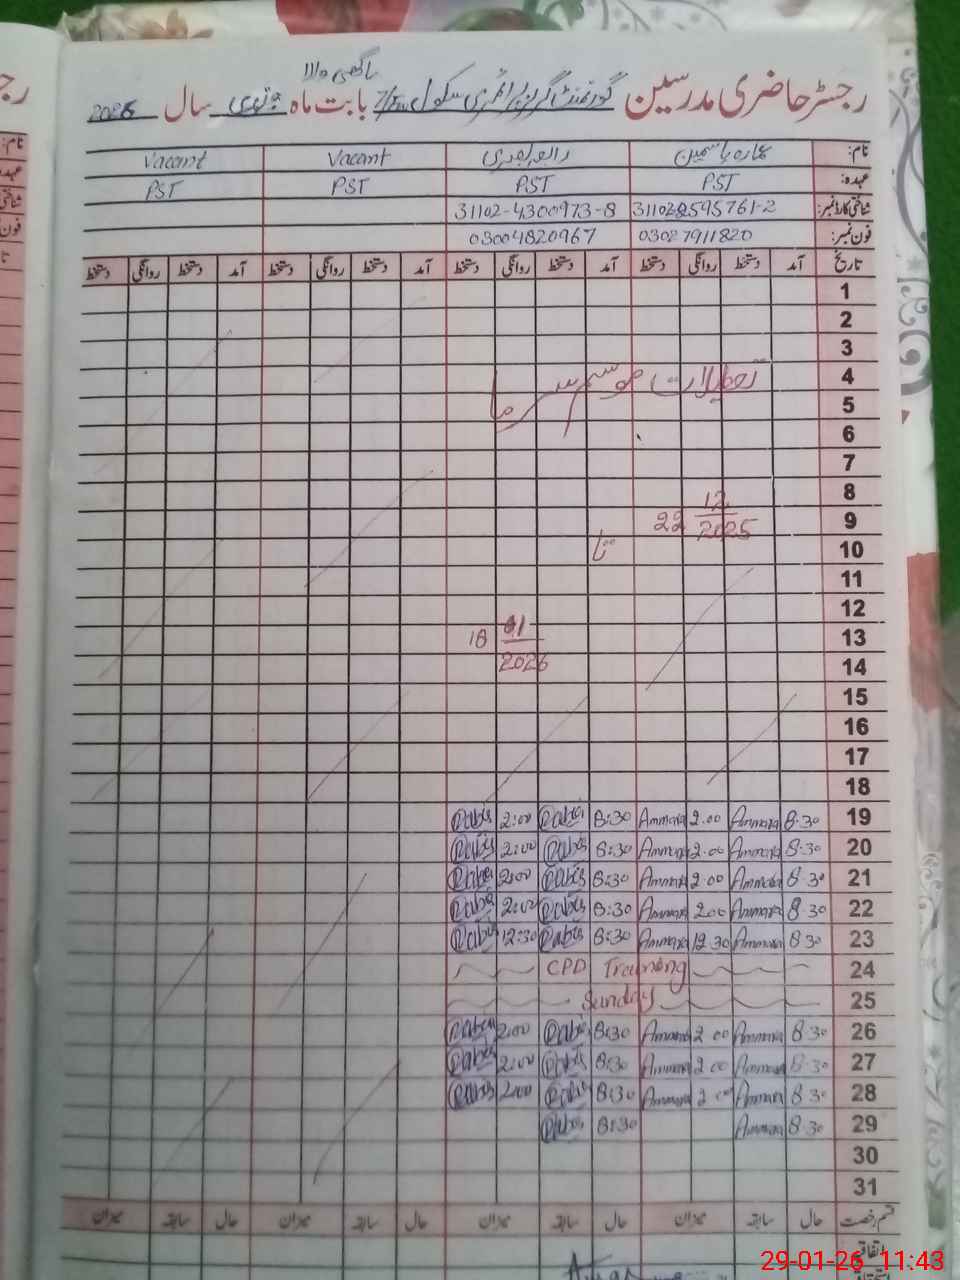 رجسٹر حاضری مدرسین گورنمنٹ گرلز پرائمری سکول بابت ماہ جنوری سال 2026
نام: عمارہ یاسمین Vacant Vacant
عہدہ: PST PST PST PST
شناختی کارڈ نمبر: 311028595761-2 31102-4300973-8
فون نمبر: 03027911820 03004820967
تاریخ آمد دستخط روانگی دستخط آمد دستخط روانگی دستخط آمد دستخط روانگی دستخط آمد دستخط روانگی دستخط
1
2
3
4 تعطیلات موسم سرما
5
6
7
8
9 22 12/2025
10 تا
11
12
13 18 01/2026
14
15
16
17
18
19 8:30 Ammara 2.00 Ammara 8:30 Rabia 2:00 Rabia
20 8:30 Ammara 2.00 Ammara 8:30 Rabia 2:00 Rabia
21 8:30 Ammara 2.00 Ammara 8:30 Rabia 2:00 Rabia
22 8:30 Ammara 2.00 Ammara 8:30 Rabia 2:00 Rabia
23 8:30 Ammara 12.30 Ammara 8:30 Rabia 12:30 Rabia
24 CPD Training
25 Sunday
26 8:30 Ammara 2.00 Ammara 8:30 Rabia 2:00 Rabia
27 8:30 Ammara 2.00 Ammara 8:30 Rabia 2:00 Rabia
28 8:30 Ammara 2.00 Ammara 8:30 Rabia 2:00 Rabia
29 8:30 Ammara 8:30 Rabia
30
31
قسم رخصت حال سابقہ میزان حال سابقہ میزان حال سابقہ میزان حال سابقہ میزان
اتفاقیہ
29-01-26 11:43